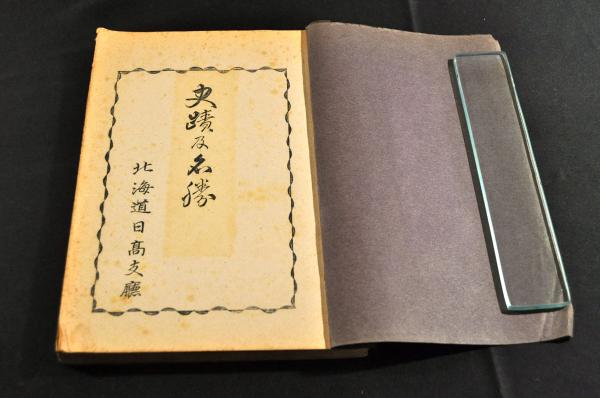 史蹟及名勝
北海道日高支廳